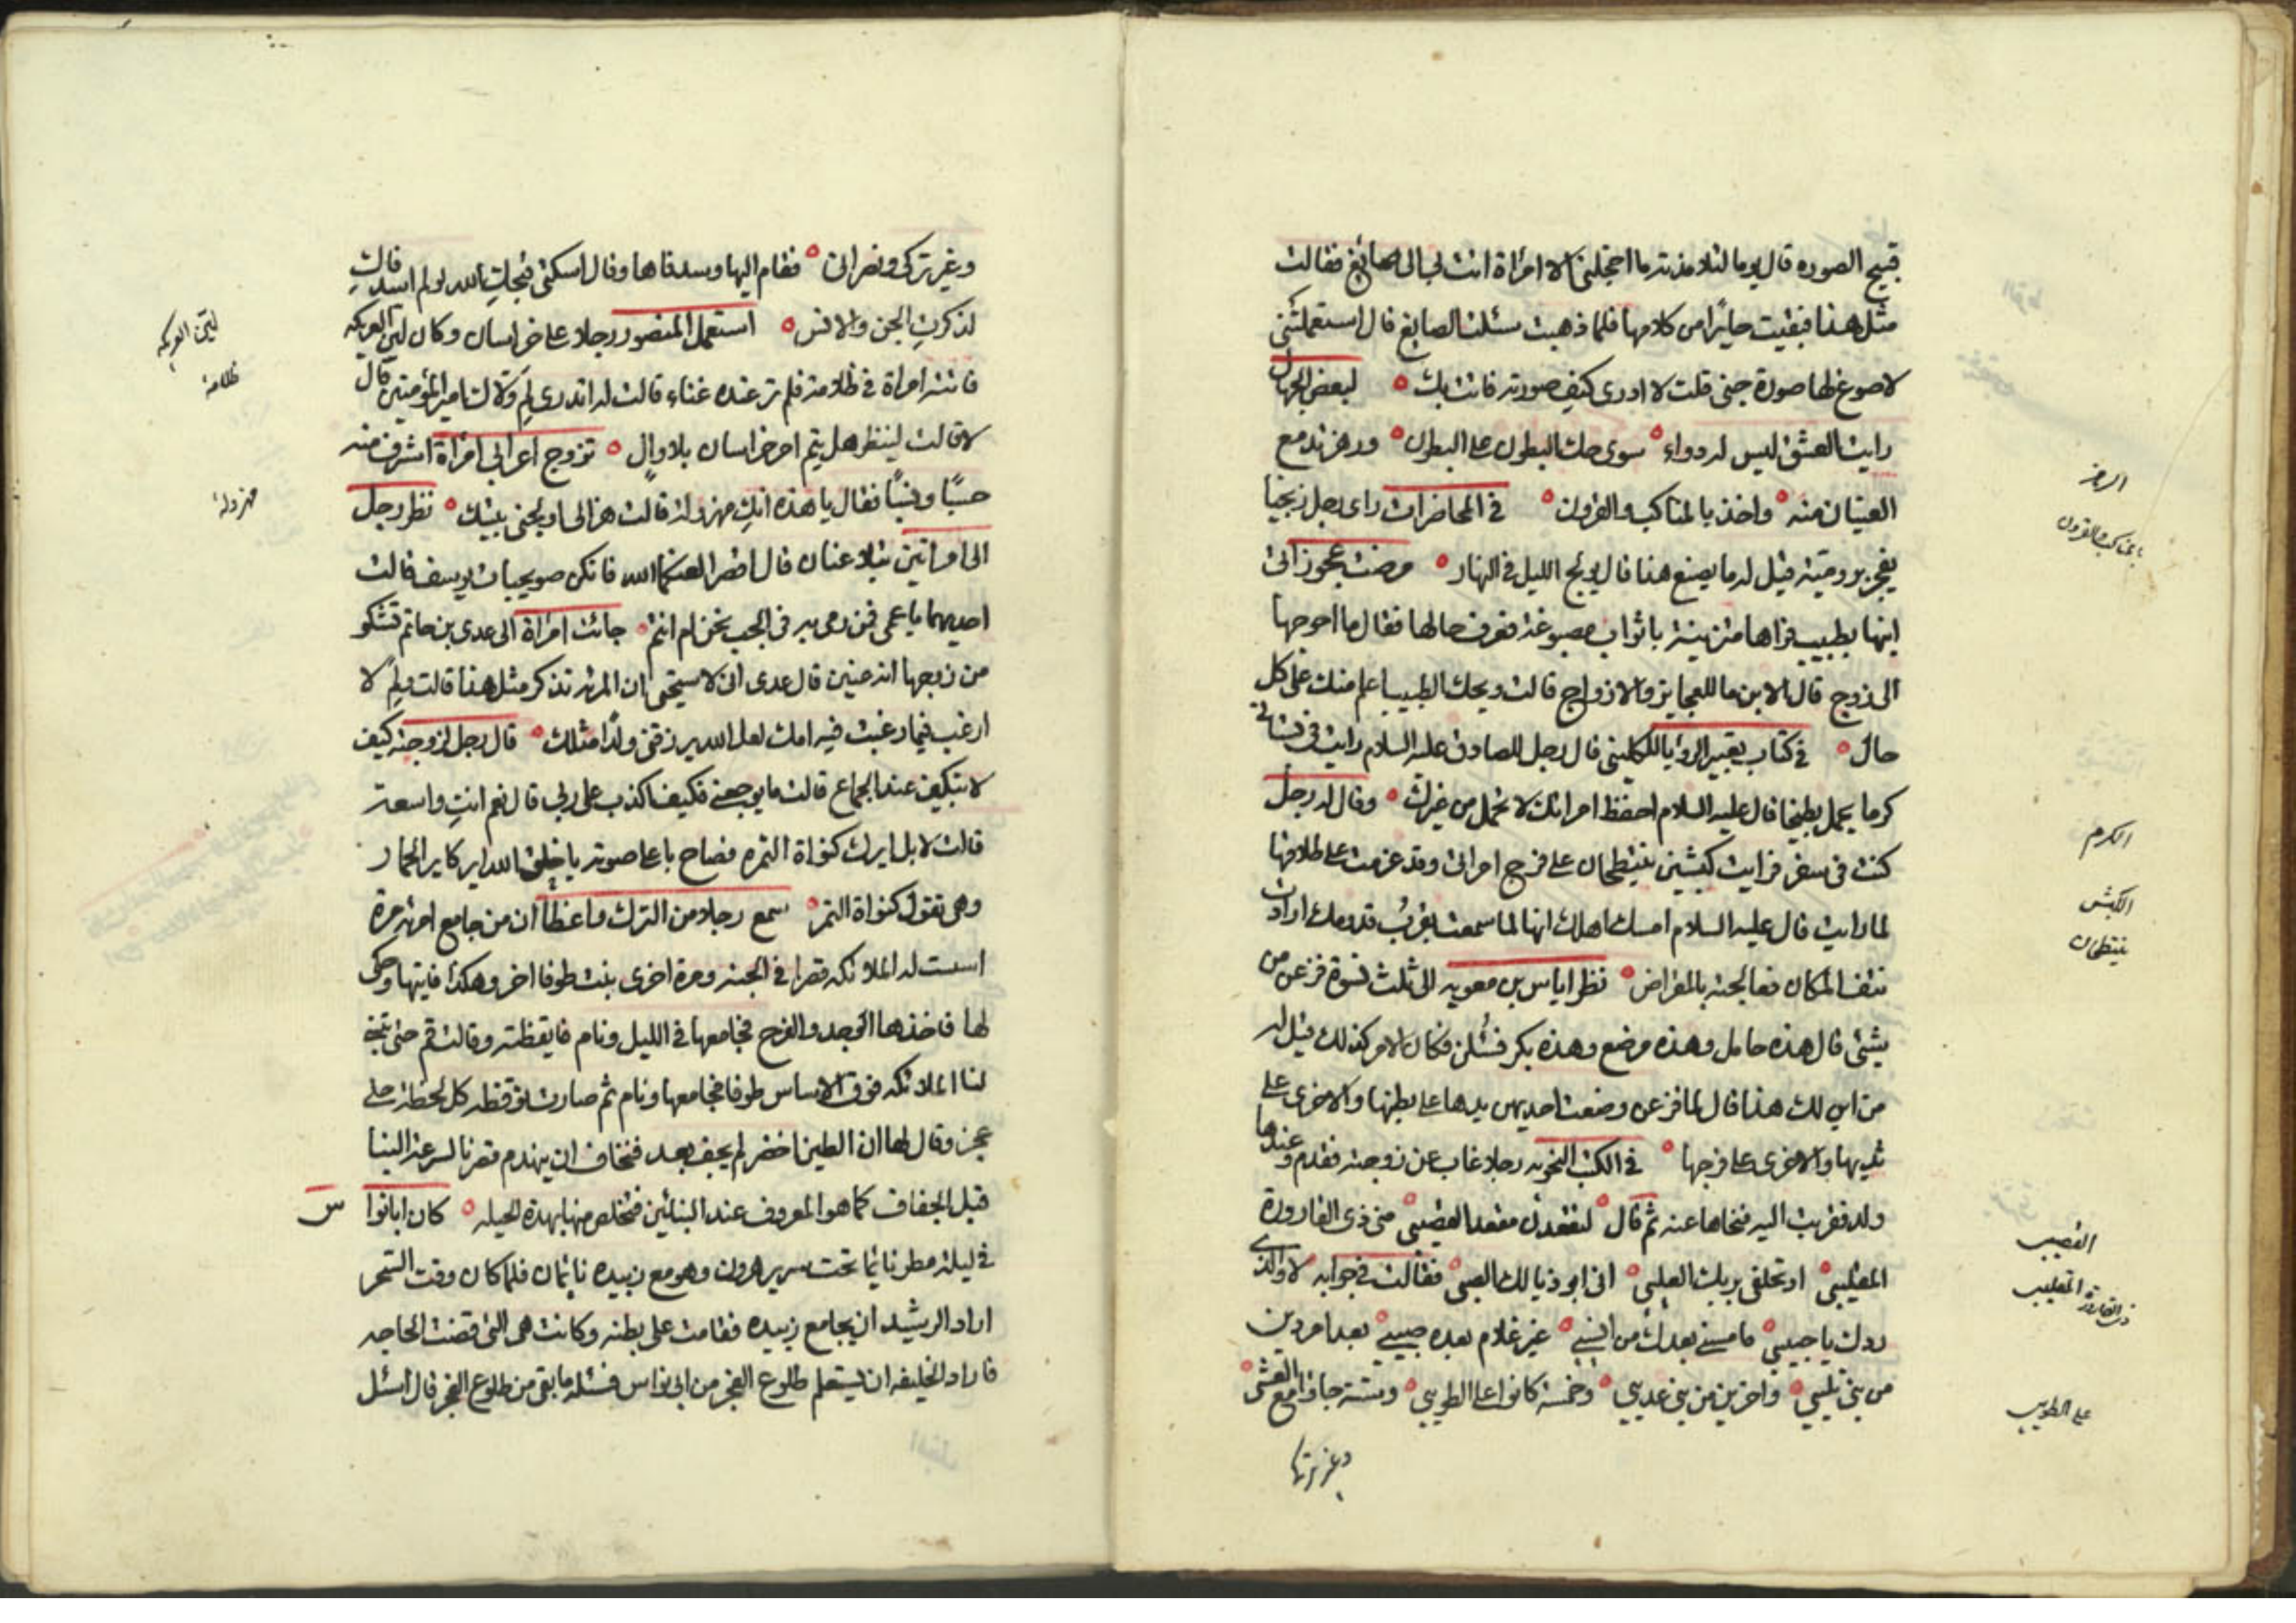 قبيح الصوره قال يوما لتلامذته ما اخجلني الا امراة اتت بي الى صائغ فقالت
مثل هذا فبقيت حايرًا من كلامها فلما ذهبت سئلت الصايغ قال استعملتني
لاصوغ لها صورة جني قلت لا ادري كيف صورته فاتت بك لبعض الجهال
رايت العشق ليس له دواء سوى حك البطون على البطون ورهز تدمع
العينان منه واخذ بالمناكب والقرون في المحاضرات راى رجل زنجيا
يفجر برومية قيل له ما يصنع هذا قال يولج الليل في النهار مرضت عجوز اتى
ابنها بطبيب فراها متزينة باثواب مصبوغة فعرف حالها فقال ما احوجها
الى زوج قال الابن ما للعجايز والازواج قالت ويحك الطبيب اعلم منك على كل
حال في كتاب تعبير الرؤيا للكليني قال رجل للصادق عليه السلام رايت في بستاني
كرما يحمل بطيخا قال عليه السلام احفظ امراتك لا تحمل من غيرك وقال له رجل
كنت في سفر فرايت كبشين ينتطحان على فرج امراتي وقد عزمت على طلاقها
لما رايت قال عليه السلام امسك اهلك انها لما سمعت بقرب قدومك ارادت
نتف المكان فعالجته بالمقراض نظر اياس بن معويه الى ثلث نسوة فزعن من
شئ قال هذه حامل وهذه مرضع وهذه بكر فسئلن فكان الامر كذلك قيل له
من اين لك هذا قال لما فزعن وضعت احديهن يدها على بطنها والاخرى على
ثديها والاخرى على فرجها في الكتب النحويه رجلا غاب عن زوجته فقدم وعندها
ولد فقربت اليه فنحاها عنه ثم قال لتقعدن مقعد القصي مني ذي القاذورة
المقلي او تحلفي بربك العلي اني ابو ذيالك الصبي فقالت في جوابه لا والذي
ردك يا حبيبي ما مسني بعدك من انسي غير غلام بعده صبي بعد امردين
من بني تليي واخرين من بني عديي وخمسة كانوا على الطويي وستة جاؤا مع العشي
وغير تركي
الرهز
بالمناكب والقرون
الكرم
الكبش
ينتطحان
القصيب
ذي القاذورة المقليب
على الطويب
وغير تركي ونصراني فقام اليها وسد فاها وقال اسكتي فبجلت الله لو لم اسد فاك
لذكرت الجن والانس استعمل المنصور رجلا على خراسان وكان لين العريكه
فاتته امراة في ظلامة فلم تر عنده غناء قالت له اتدري لم ولاك امير المؤمنين قال
لا قالت لينظر هل يتم امر خراسان بلا والٍ تزوج اعرابي امراة اشرف منه
حسبًا ونسبًا فقال يا هذه انك مهزولة قالت هزالي اولجني بيتك نظر رجل
الى امراتين تتلاعنان قال اقصرا لعنكما الله فانكن صويحبات يوسف قالت
احديهما يا عمى فمن رمى به في الجب نحن ام انتم جائت امراة الى عدي بن حاتم تشكو
من زوجها انه عنين قال عدي اني لاستحيي ان المرئة تذكر مثل هذا قالت ولم لا
ارغب فيما رغبت فيه امك لعل الله يرزقني ولدًا مثلك قال رجل لزوجته كيف
لا تبكين عند الجماع قالت ما يوجعني فكيف اكذب على ربي قال نعم انت واسعة
قالت لا بل ايرك كنواة التمره فصاح باعلا صوته يا خلق الله اير كاير الحمار
وهي تقول كنواة التمر سمع رجلا من الترك واعظًا ان من جامع امرئه مرة
اسست له الملائكه قصرا في الجنه ومرة اخرى بنت طوفا اخر وهكذا فاتيها وحكى
لها فاخذها الوجد والفرح فجامعها في الليل ونام فايقظته وقالت قم حتى تبني
لنا الملائكه فوق الاساس طوفا فجامعها ونام ثم صارت توقظه كل لحظة حتى
عجز وقال لها ان الطين اخضر لم يجف بعد فنخاف ان ينهدم قصرنا لسرعة البناء
قبل الجفاف كما هو المعروف عند البنائين فتخلص منها بهذه الحيله كان ابا نوا س
في ليلة مطر نائما تحت سرير هرون وهو مع زبيده نائمان فلما كان وقت السحر
اراد الرشيد ان يجامع زبيده فقامت على بطنه وكانت هي التي قضت الحاجه
فاراد الخليفه ان يستعلم طلوع الفجر من ابي نواس فسئله ما بقي من طلوع الفجر قال اسئل
لين العريكه
ظلامة
مهزولة